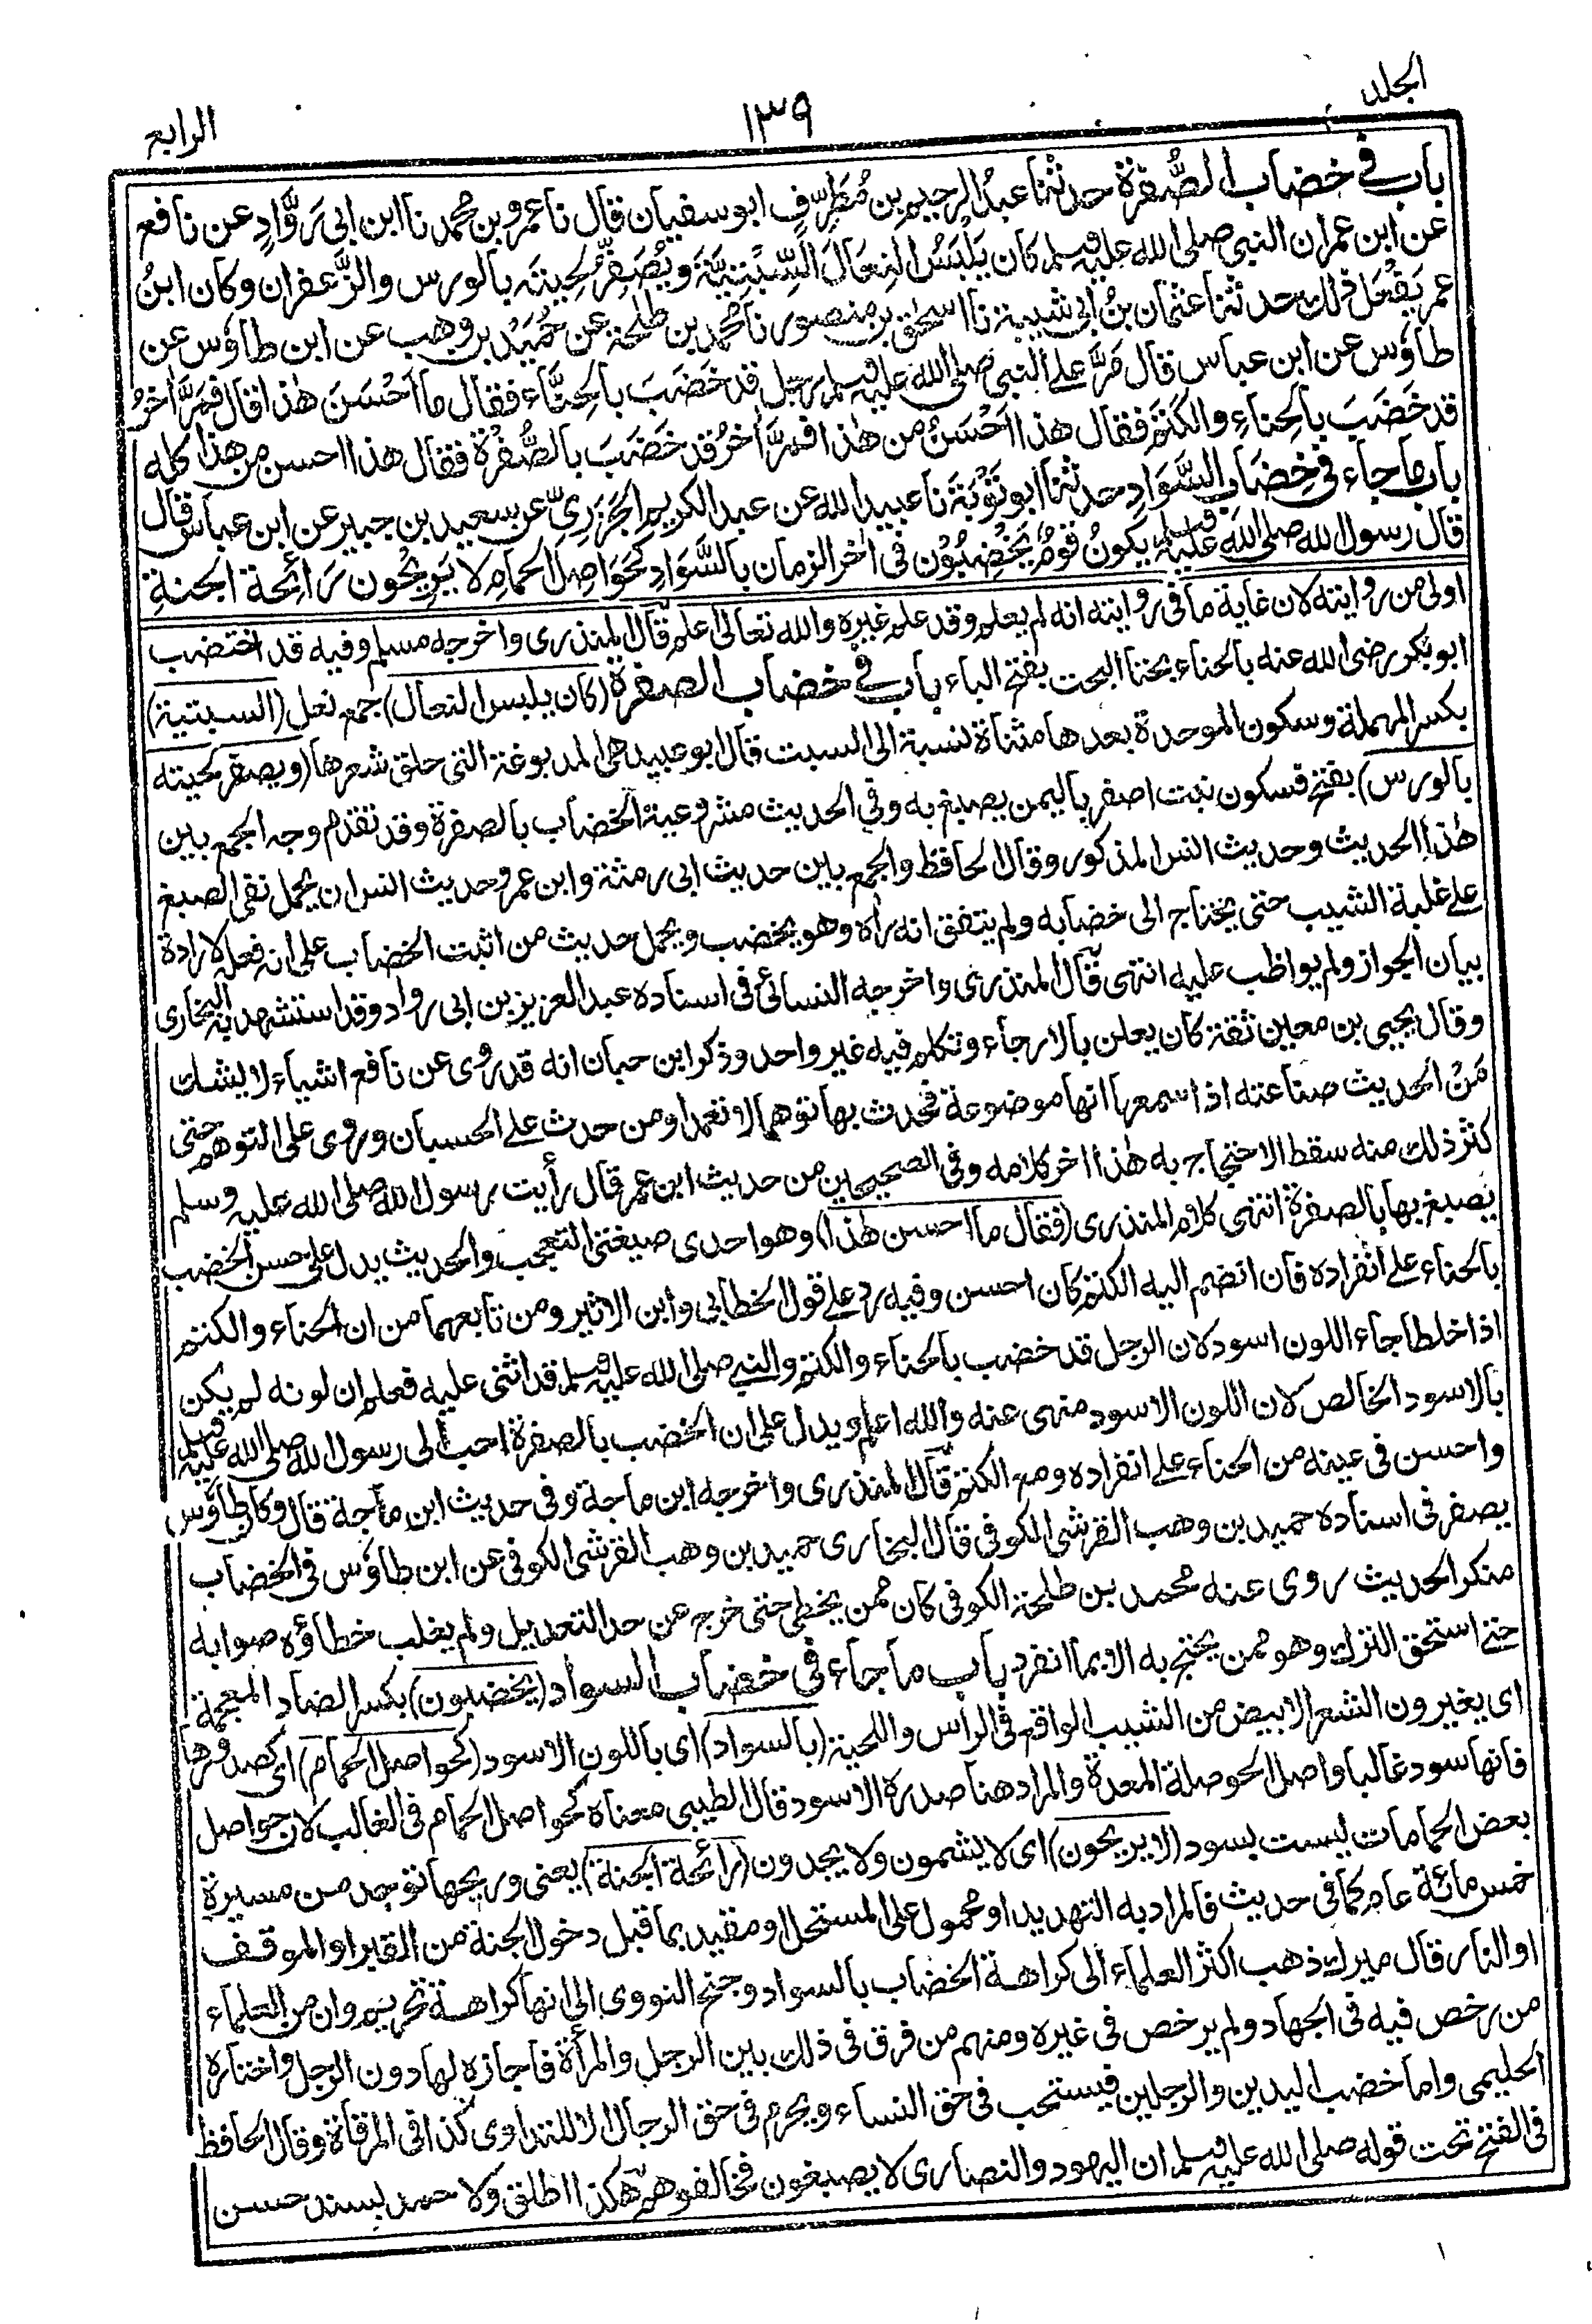 الجلد
١٣٩
الرابع
باب في خضاب الصُّفرة حدثنا عبدُ الرحيم بن مُطَرِّفٍ ابو سفيان قال نا عمرو بن محمد نا ابن ابى رَوَّادٍ عن نافع
عن ابن عمر ان النبى صلى الله عليه وسلم كان يَلْبَسُ النِعالَ السِّبْتِيَّةَ ويُصَفِّرُ لحِيتَه بالورس والزَّعفران وكان ابنُ
عمر يَفْعَل ذلك حدثنا عثمان بنُ ابى شيبة نا اسحٰق بن منصور نا محمد بن طلحة عن حُمَيْدُ بن وهب عن ابن طاؤس عن
طاؤس عن ابن عباس قال مَرَّ على النبى صلى الله عليه وسلم رجل قد خَضَبَ بالحِنَّاء فقال ما اَحْسَنَ هٰذا قال فمَرَّ اٰخرُ
قد خَضَبَ بالحِناءِ والكَتَمِ فقال هذا اَحْسَنُ من هٰذا فمرَّ اٰخرُ قد خَضَبَ بالصُّفرَة فقال هذا احسن من هذا كله
باب ما جاء فى خِضَابِ السَّوَادِ حدثنا ابو تَوْبَةَ نا عبيد الله عن عبد الكريم الجَزَرِيِّ عن سعيد بن جبير عن ابن عباس قال
قال رسول الله صلى الله عليه وسلم يكونُ قومٌ يَخْضِبُوْن فى اٰخر الزمان بالسَّوَادِ كحَوَاصِل الحمامِ لا يَرِيْحُون رَائِحة الجنةِ
اولى من روايته لان غاية ما فى روايته انه لم يعلم وقد علم غيره والله تعالى اعلم قال المنذرى واخرجه مسلم وفيه قد اختضب
ابو بكر رضى الله عنه بالحناء بحتا البحت بفتح الباء باب في خضاب الصفرة (كان يلبس النعال) جمع نعل (السبتية)
بكسر المهملة وسكون الموحدة بعدها مثناة نسبة الى السبت قال ابو عبيد هى المدبوغة التى حلق شعرها (ويصفر لحيته
بالورس) بفتح فسكون نبت اصفر باليمن يصبغ به وفى الحديث مشروعية الخضاب بالصفرة وقد تقدم وجه الجمع بين
هٰذا الحديث وحديث انس المذكور وقال الحافظ والجمع بين حديث ابى رمثة وابن عمر وحديث انس ان يحمل نفى الصبغ
على غلبة الشيب حتى يحتاج الى خضابه ولم يتفق انه رأه وهو يخضب ويحمل حديث من اثبت الخضاب على انه فعله لارادة
بيان الجواز ولم يواظب عليه انتهى قال المنذرى واخرجه النسائى فى اسناده عبد العزيز بن ابى رواد وقد استشهد به البخارى
وقال يحيى بن معين ثقة كان يعلن بالارجاء وتكلم فيه غير واحد وذكر ابن حبان انه قد روى عن نافع اشياء لا يشك
مَنْ الحديث صناعته اذا سمعها انها موضوعة فحدث بها توهما لا تعمدا ومن حدث على الحسبان وروى على التوهم حتى
كثر ذلك منه سقط الاحتجاج به هٰذا اٰخر كلامه وفى الصحيحين من حديث ابن عمر قال رأيت رسول الله صلى الله عليه وسلم
يصبغ بها بالصفرة انتهى كلام المنذرى (فقال ما احسن هٰذا) وهو احدى صيغتى التعجب والحديث يدل على حسن الخضب
بالحناء على انفراده فان انضم اليه الكتم كان احسن وفيه رد على قول الخطابى وابن الاثير ومن تابعهما من ان الحناء والكتم
اذا خلطا جاء اللون اسود لان الرجل قد خضب بالحناء والكتم والنبى صلى الله عليه وسلم قد اثنى عليه فعلم ان لونه لم يكن
بالاسود الخالص لان اللون الاسود منهى عنه والله اعلم ويدل على ان الخضب بالصفرة احب الى رسول الله صلى الله عليه وسلم
واحسن فى عينه من الحناء على انفراده ومع الكتم قال المنذرى واخرجه ابن ماجة وفى حديث ابن ماجة قال وكان طاؤس
يصفر فى اسناده حميد بن وهب القرشى الكوفى قال البخارى حميد بن وهب القرشى الكوفى عن ابن طاؤس فى الخضاب
منكر الحديث روى عنه محمد بن طلحة الكوفى كان ممن يخطى حتى خرج عن حد التعديل ولم يغلب خطاؤه صوابه
حتى استحق الترك وهو ممن يحتج به الا بما انفرد باب ما جاء في خضاب السواد (يخضبون) بكسر الضاد المعجمة
اى يغيرون الشعر الابيض من الشيب الواقع فى الرأس واللحية (بالسواد) اى باللون الاسود (كحواصل الحمام) اى كصدورها
فانها سود غالبا واصل الحوصلة المعدة والمراد هنا صدره الاسود قال الطيبى معناه كحواصل الحمام فى الغالب لان حواصل
بعض الحمامات ليست بسود (لا يريحون) اى لا يشمون ولا يجدون (رائحة الجنة) يعنى وريحها توجد من مسيرة
خمس مائة عام كما فى حديث فالمراد به التهديد او محمول على المستحل او مقيد بما قبل دخول الجنة من القبر او الموقف
او النار قال ميرك ذهب اكثر العلماء الى كراهة الخضاب بالسواد وجنح النووى الى انها كراهة تحريم وان من العلماء
من رخص فيه فى الجهاد ولم يرخص فى غيره ومنهم من فرق فى ذلك بين الرجل والمرأة فاجازه لها دون الرجل واختاره
الحليمى واما خضب اليدين والرجلين فيستحب فى حق النساء ويحرم فى حق الرجال الا للتداوى كذا فى المرقاة وقال الحافظ
فى الفتح تحت قوله صلى الله عليه وسلم ان اليهود والنصارى لا يصبغون فخالفوهم هٰكذا اطلق ولاحمد بسند حسن